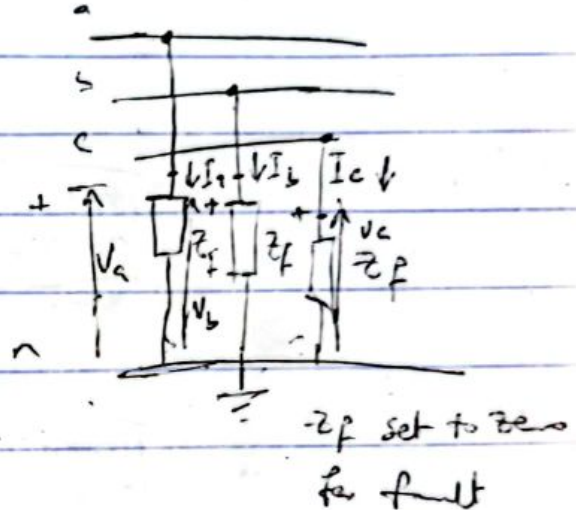 a
b
c
↓Ia ↓Ib Ic ↓
+ + +
Va Zf Zf Vc
Zf
Vb
n
-Zf set to zero
for fault